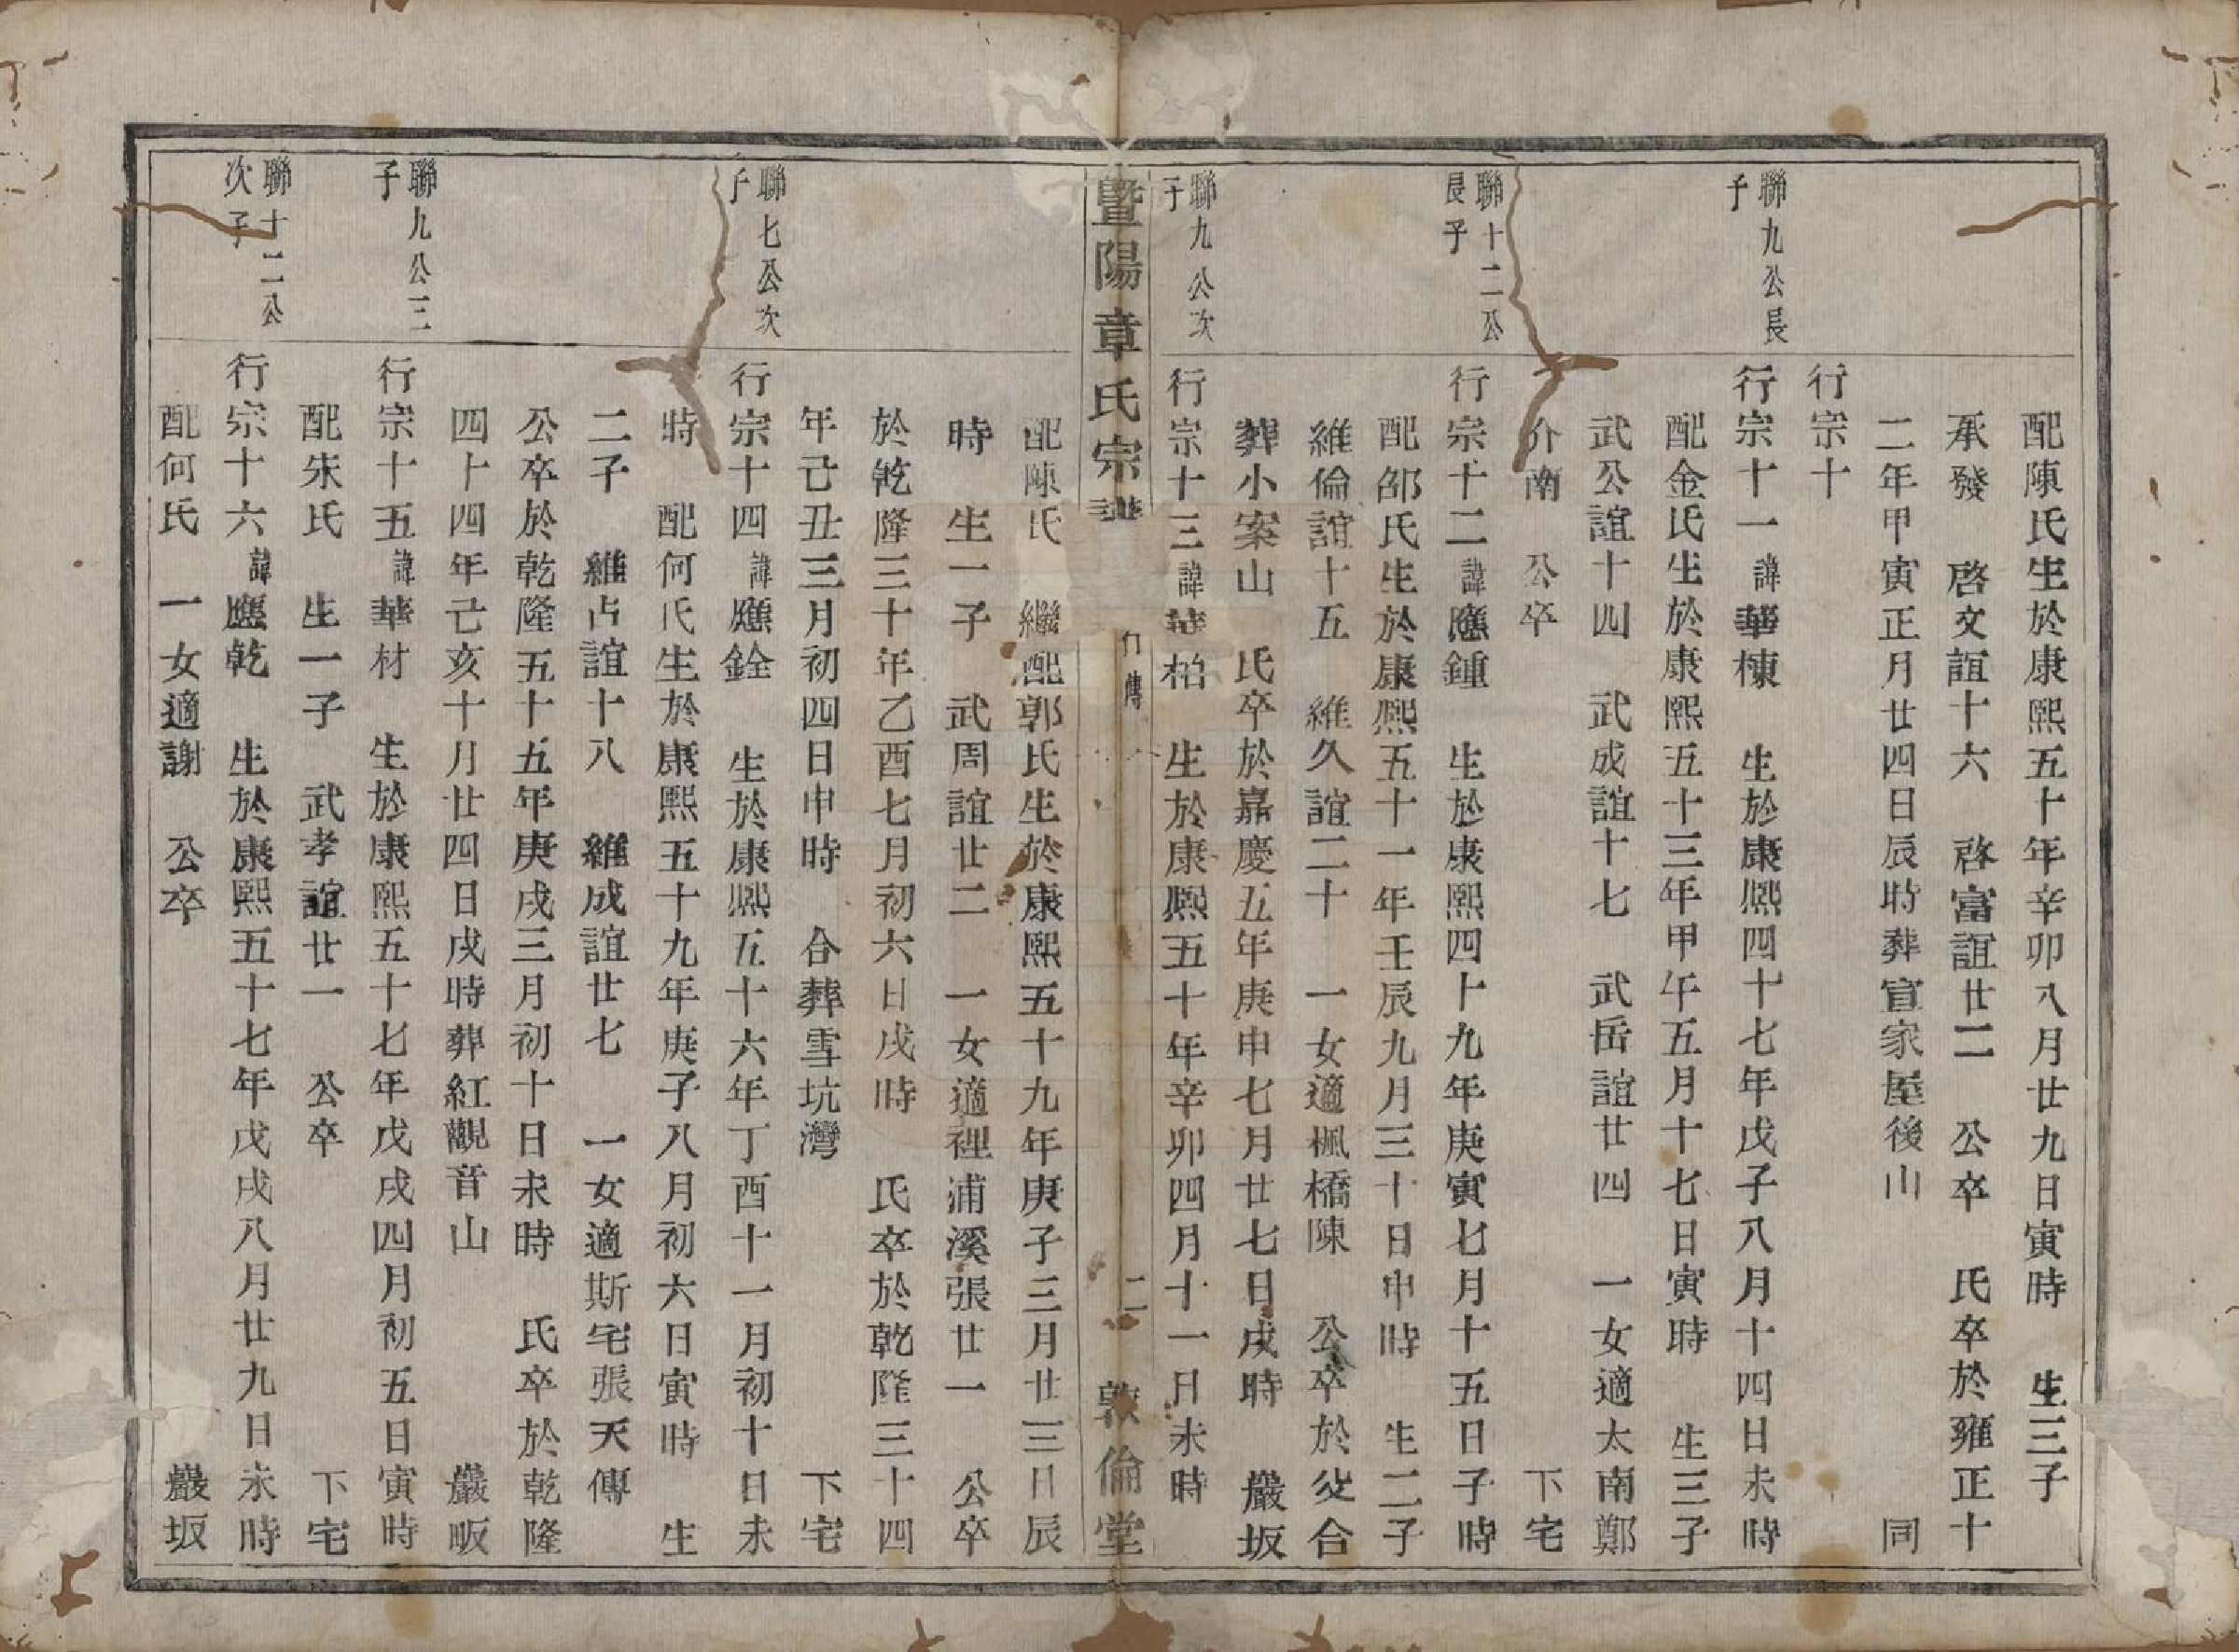 配陳氏生於康熙五十年辛卯八月廿九日寅時 生三子
承發 啓文誼十六 啓富誼廿二 公卒 氏卒於雍正十
二年甲寅正月廿四日辰時葬宣家屋後山 同
行宗十
聯九公長
子
行宗十一諱華棟 生於康熙四十七年戊子八月十四日未時
配金氏生於康熙五十三年甲午五月十七日寅時 生三子
武公誼十四 武成誼十七 武岳誼廿四 一女適太南鄭
介南 公卒 下宅
聯十二公
長子
行宗十二諱應鍾 生於康熙四十九年庚寅七月十五日子時
配邵氏生於康熙五十一年壬辰九月三十日申時 生二子
維倫誼十五 維久誼二十 一女適楓橋陳 公卒於 合
葬小案山 氏卒於嘉慶五年庚申七月廿七日戌時 嚴坂
聯九公次
子
行宗十三諱華柏 生於康熙五十年辛卯四月十一日未時
暨陽章氏宗譜 行傳 二 敦倫堂
配陳氏 繼配郭氏生於康熙五十九年庚子三月廿三日辰
時 生一子 武周誼廿二 一女適裡浦溪張廿一 公卒
於乾隆三十年乙酉七月初六日戌時 氏卒於乾隆三十四
年己丑三月初四日申時 合葬雪坑灣 下宅
聯七公次
子
行宗十四諱應銓 生於康熙五十六年丁酉十一月初十日未
時 配何氏生於康熙五十九年庚子八月初六日寅時 生
二子 維占誼十八 維成誼廿七 一女適斯宅張天傳
公卒於乾隆五十五年庚戌三月初十日未時 氏卒於乾隆
四十四年己亥十月廿四日戌時葬紅觀音山 嚴畈
聯九公三
子
行宗十五諱華材 生於康熙五十七年戊戌四月初五日寅時
配朱氏 生一子 武孝誼廿一 公卒 下宅
聯十二公
次子
行宗十六諱應乾 生於康熙五十七年戊戌八月廿九日未時
配何氏 一女適謝 公卒 嚴坂